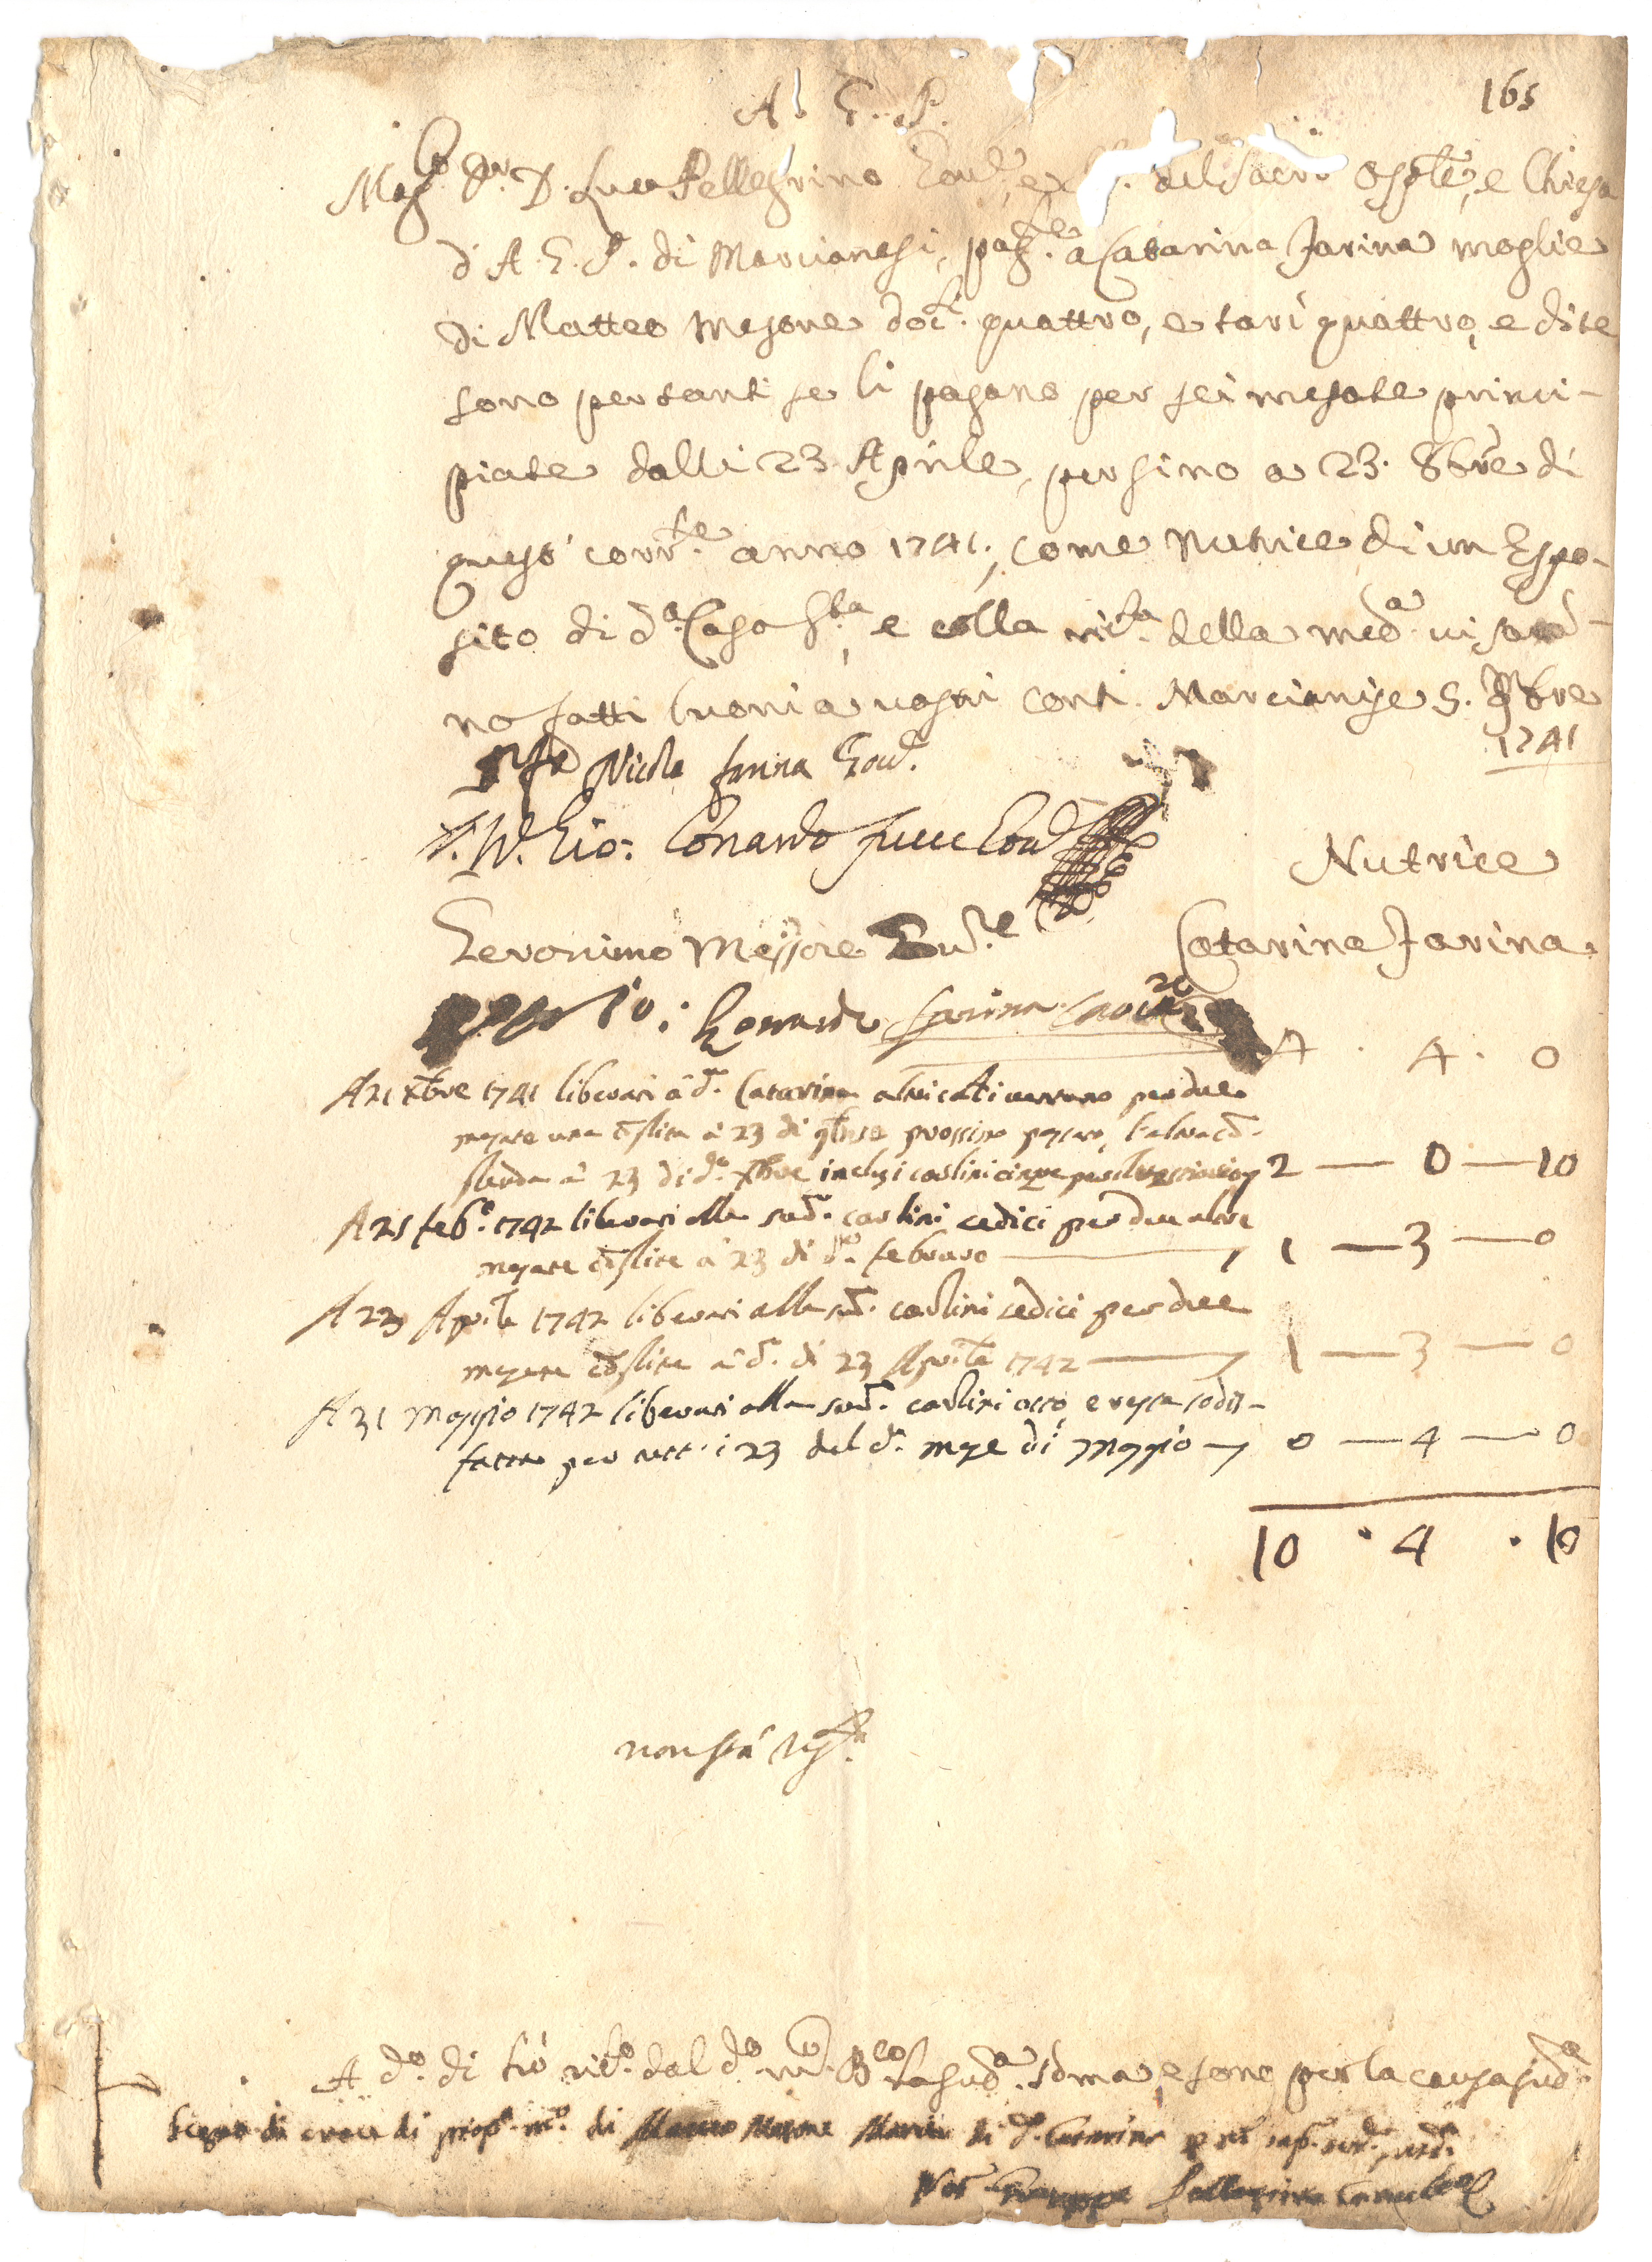 165
A. G. P.
Mag.co Sr. D. Luca Pellegrino Gov.e, e del Sacro Osp.le, e Chiesa
d'A. G. P. di Marcianesi, pag.te a Catarina Farina moglie
di Matteo Mesone doc.ti quattro, e tarì quattro, e dite
sono per tanti se li pagano per sei mesate princi-
piate dalli 23 Aprile, per sino a 23. 8bre di
questo corr.te anno 1741., come Nutrice di un Espo-
sito di d.a Casa S.ta, e colla ric.ta della med.a vi saran-
no fatti buoni a vostri conti. Marcianise 5. 9bre
1741
Nicola farina Gov.
Gio: Conardo Gov.
Nutrice
Geronimo Messore Gov.re
Catarina Farina
Gio: Leonardo farina
4 . 4 . 0
A 21 Xbre 1741 liberati a d. Catarina per due
mesate una a 23 di 9bre prossimo passato, l'altra
a 23 di d.o Xbre inclusi carlini cinque 2 — 0 — 10
A 25 feb.o 1742 liberati alla sud. carlini sedici per due altre
mesate a 23 di d.o febraro — 1 — 3 — 0
A 23 Aprile 1742 liberati alla sud. carlini sedici per due
mesate a d. di 23 Aprile 1742 — 1 — 3 — 0
A 31 Maggio 1742 liberati alla sud. carlini otto, e resta sodis-
fatta per tutt'i 23 del d. mese di Maggio — 0 — 4 — 0
10 . 4 . 10
non stà
A d.o di hò ric.to dal d.o la sud.a soma, e sono per la causa sud.a
Segno di croce di prop.a m.o di Matteo Mesone Marito di d.a Catarina
Not. Giuseppe Pellegrino